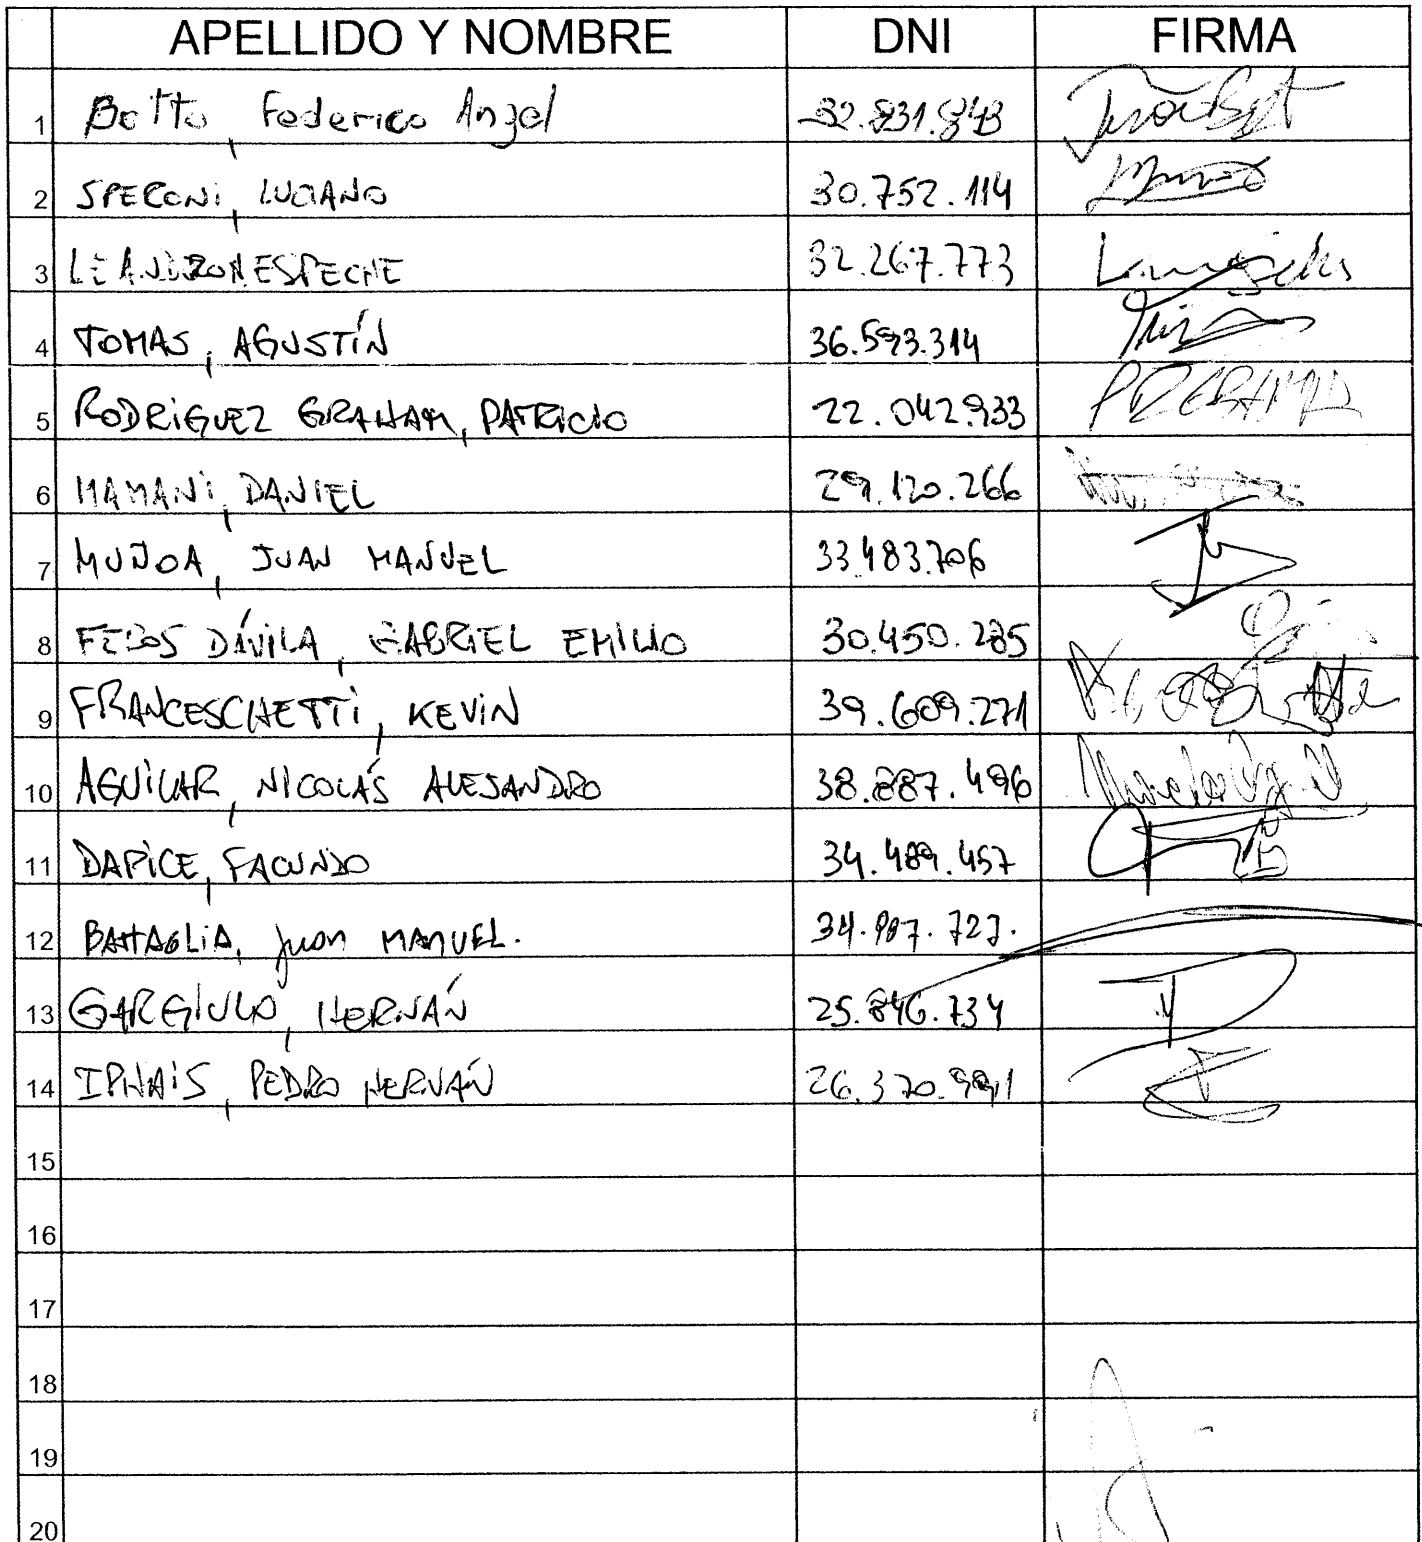 APELLIDO Y NOMBRE DNI FIRMA
1 Botto, Federico Angel 32.831.843
2 SPERONI, LUCIANO 30.752.114
3 LEANDRO NESPECHE 32.267.773
4 TOMAS, AGUSTÍN 36.593.314
5 RODRIGUEZ GRAHAM, PATRICIO 22.042.933
6 MAMANI, DANIEL 29.120.266
7 MUÑOA, JUAN MANUEL 33.483.706
8 DÁVILA, GABRIEL EMILIO 30.450.285
9 FRANCESCHETTI, KEVIN 39.609.271
10 AGUILAR, NICOLÁS ALEJANDRO 38.887.496
11 DAPICE, FACUNDO 34.489.457
12 BATTAGLIA, Juan MANUEL.
13 GARGIULO, HERNÁN 25.846.734
14 IPHAIS, PEDRO HERNÁN 26.370.991
15
16
17
18
19
20